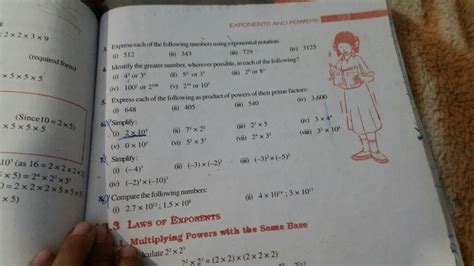 2 × 2 × 3 × 9
(required form)
× 5 × 5 × 5
(Since 10 = 2 × 5)
× 5 × 5 × 5
(as 16 = 2 × 2 × 2
× 5)
EXPONENTS AND POWERS
Express each of the following numbers using exponential notation:
(i) 512 (ii) 343 (iii) 729 (iv) 3125
Identify the greater number, wherever possible, in each of the following?
(i) 4³ or 3⁴ (ii) 5³ or 3⁵ (iii) 2⁸ or 8²
(iv) 100² or 2¹⁰⁰ (v) 2¹⁰ or 10²
Express each of the following as product of powers of their prime factors:
(i) 648 (ii) 405 (iii) 540 (iv) 3,600
Simplify:
(i) 2 × 10³ (ii) 7² × 2² (iii) 2³ × 5 (iv) 3 × 4⁴
(v) 0 × 10² (vi) 5² × 3³ (vii) 2⁴ × 3² (viii) 3² × 10⁴
Simplify:
(i) (– 4)³ (ii) (–3) × (–2)³ (iii) (–3)² × (–5)²
(iv) (–2)³ × (–10)³
Compare the following numbers:
(i) 2.7 × 10¹² ; 1.5 × 10⁸ (ii) 4 × 10¹⁴ ; 3 × 10¹⁷
.3 LAWS OF EXPONENTS
Multiplying Powers with the Same Base
2² × 2³
2² × 2³ = (2 × 2) × (2 × 2 × 2)